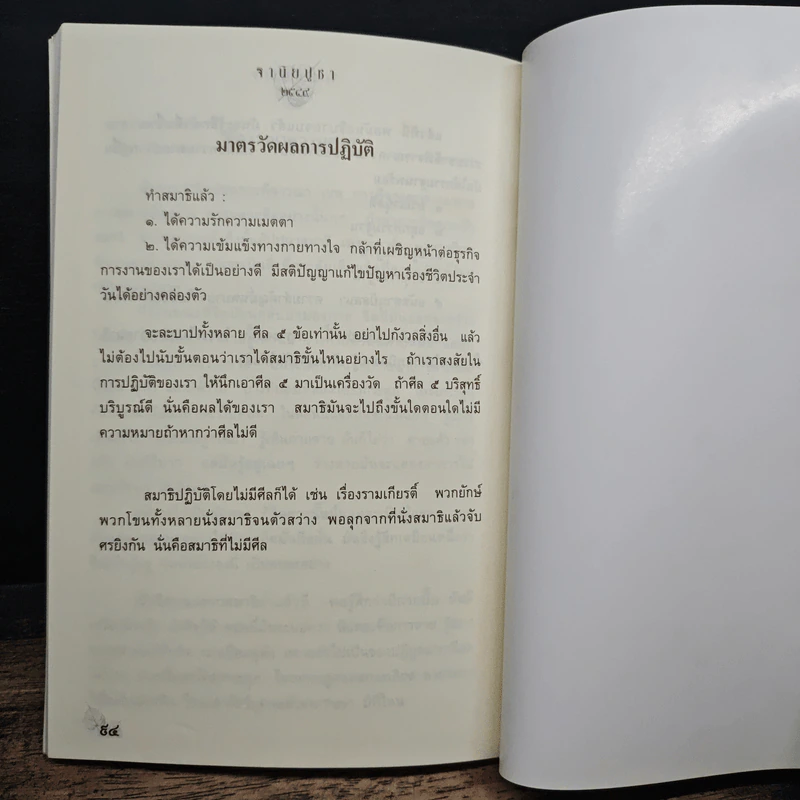 ฐานิยปูชา
๒๕๔๙
มาตรวัดผลการปฏิบัติ
ทำสมาธิแล้ว :
๑. ได้ความรักความเมตตา
๒. ได้ความเข้มแข็งทางกายทางใจ กล้าที่เผชิญหน้าต่อธุรกิจ
การงานของเราได้เป็นอย่างดี มีสติปัญญาแก้ไขปัญหาเรื่องชีวิตประจำ
วันได้อย่างคล่องตัว
จะละบาปทั้งหลาย ศีล ๕ ข้อเท่านั้น อย่าไปกังวลสิ่งอื่น แล้ว
ไม่ต้องไปนับขั้นตอนว่าเราได้สมาธิขั้นไหนอย่างไร ถ้าเราสงสัยใน
การปฏิบัติของเรา ให้นึกเอาศีล ๕ มาเป็นเครื่องวัด ถ้าศีล ๕ บริสุทธิ์
บริบูรณ์ดี นั่นคือผลได้ของเรา สมาธิมันจะไปถึงขั้นใดตอนใดไม่มี
ความหมายถ้าหากว่าศีลไม่ดี
สมาธิปฏิบัติโดยไม่มีศีลก็ได้ เช่น เรื่องรามเกียรติ์ พวกยักษ์
พวกโขนทั้งหลายนั่งสมาธิจนตัวสว่าง พอลุกจากที่นั่งสมาธิแล้วจับ
ศรยิงกัน นั่นคือสมาธิที่ไม่มีศีล
๙๔